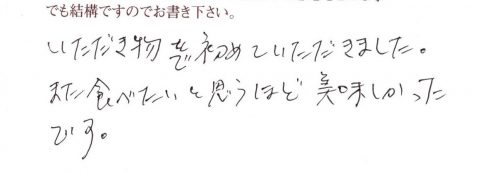 でも結構ですのでお書き下さい。
いただき物で初めていただきました。
また食べたいと思うほど美味しかった
です。